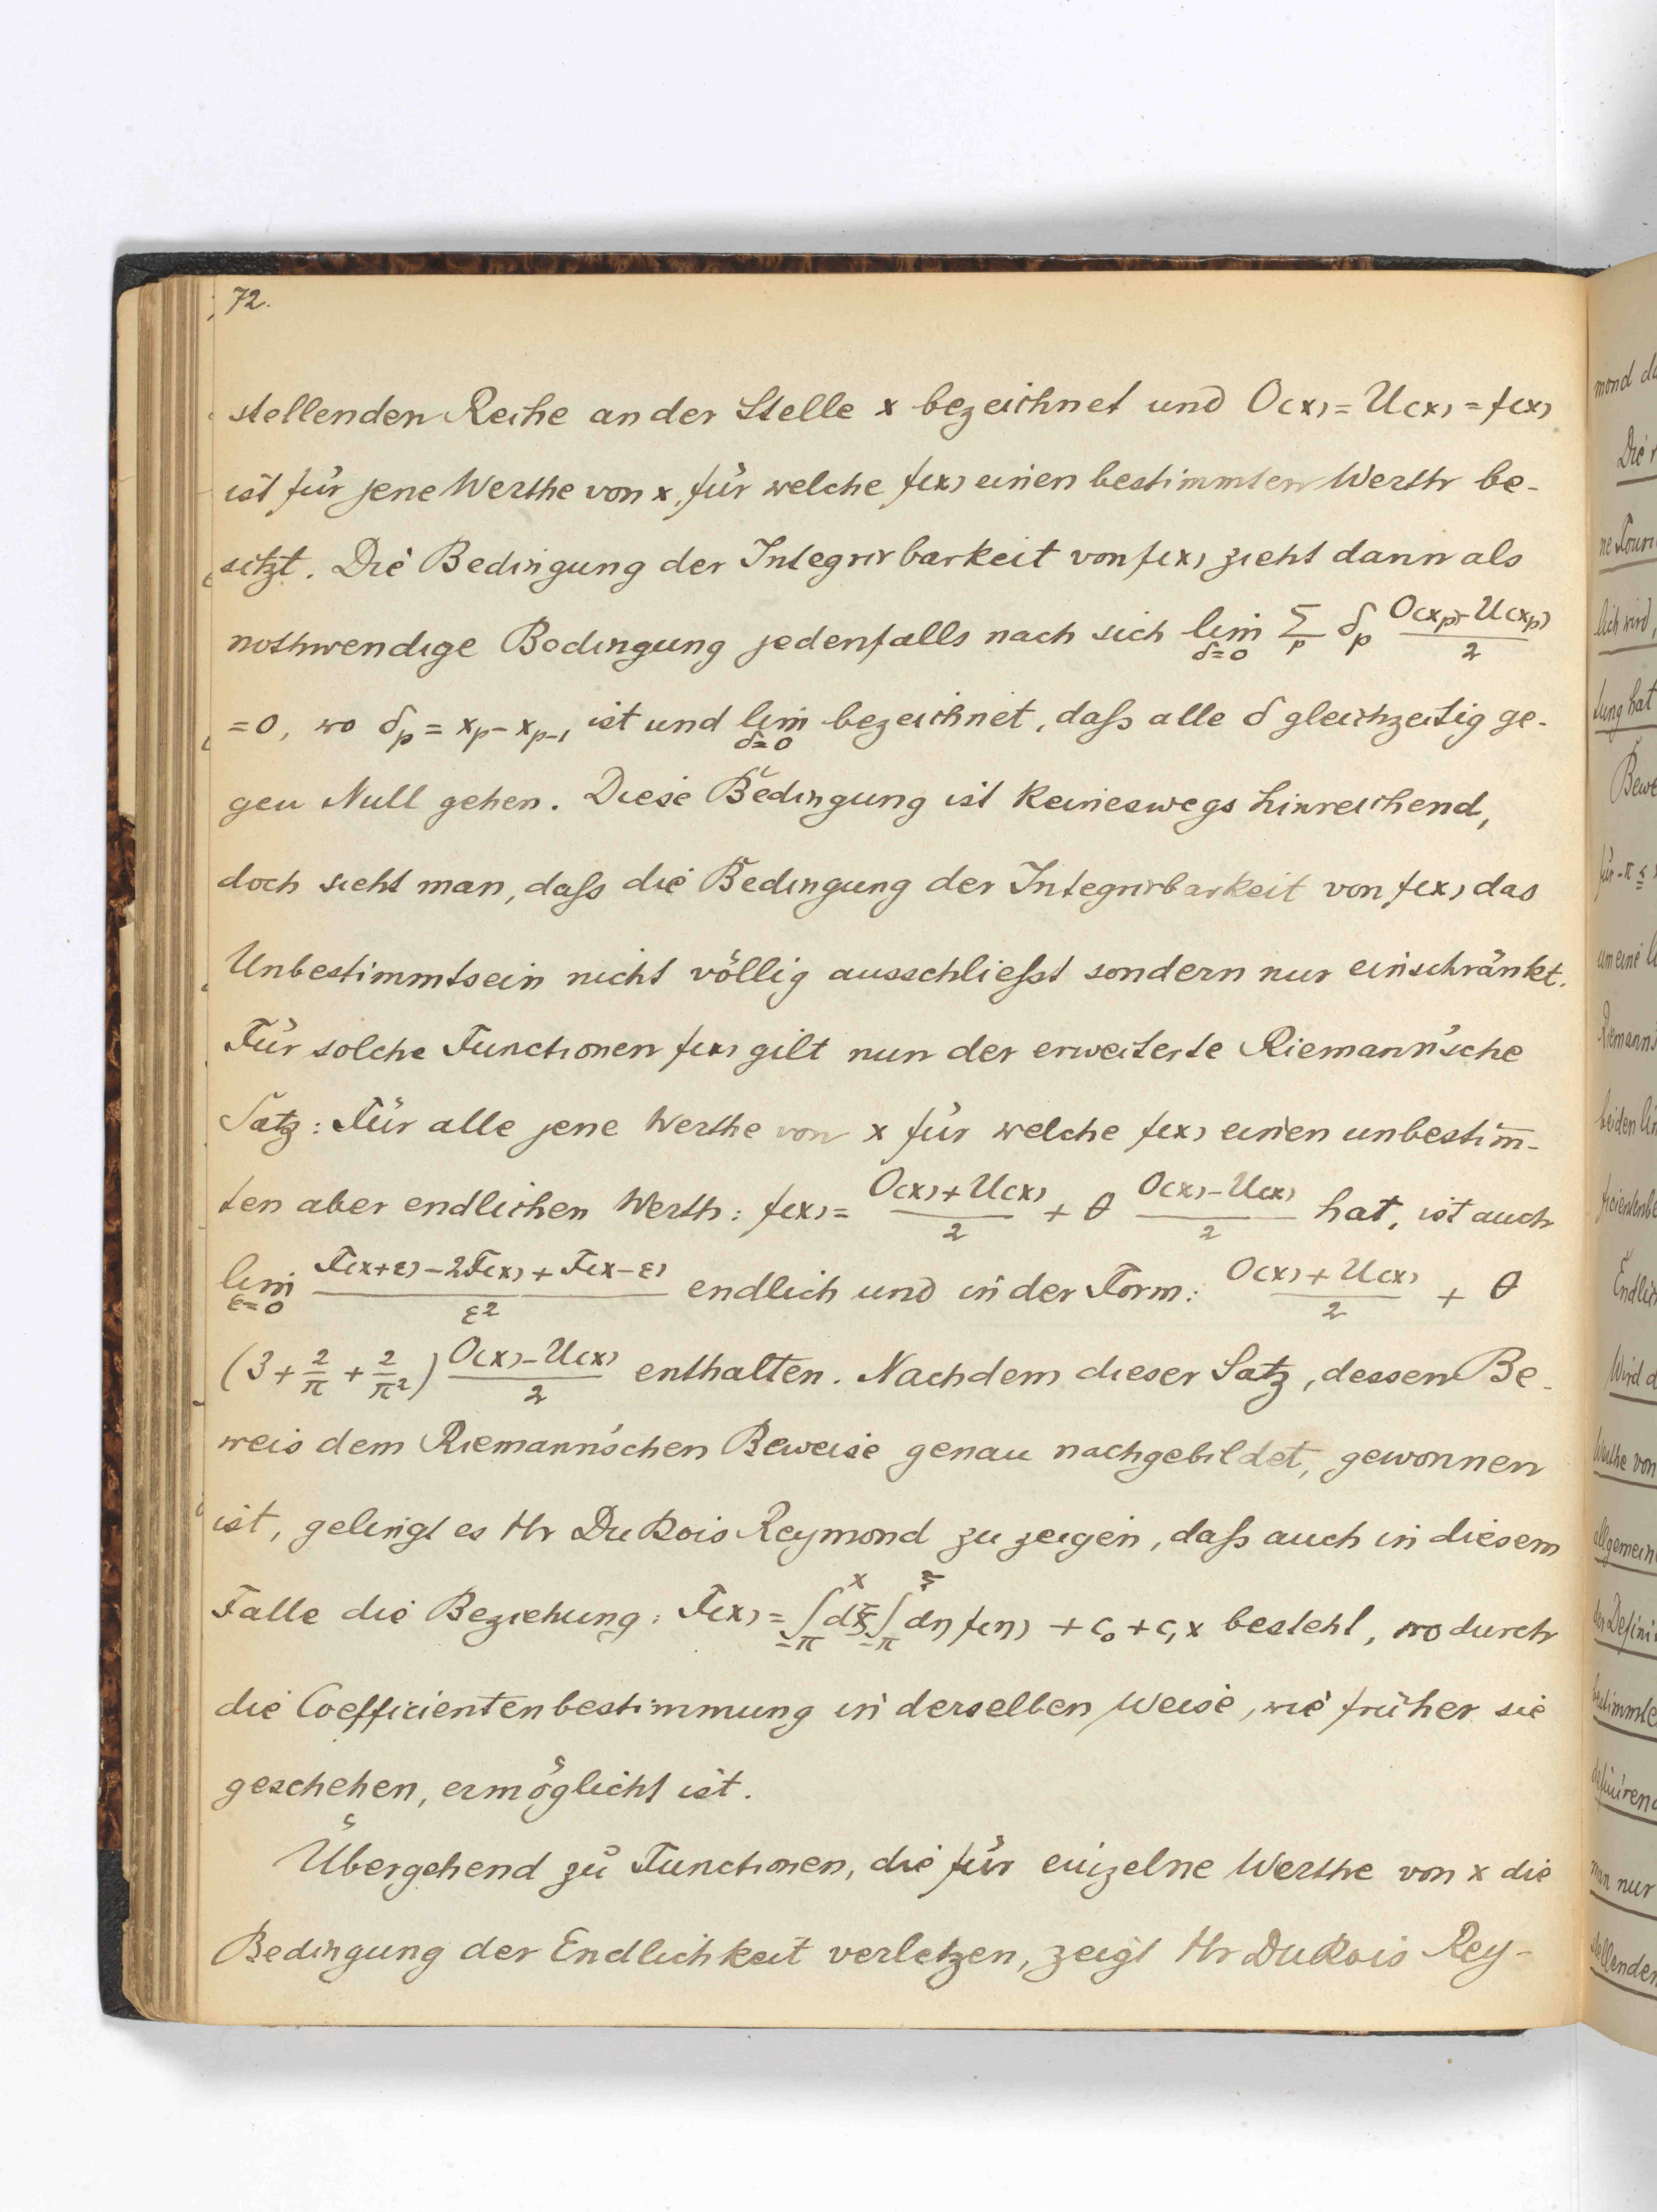 72.
stellenden Reihe an der Stelle x bezeichnet und O(x) = U(x) = f(x)
ist für jene Werthe von x, für welche f(x) einen bestimmten Werth be-
sitzt. Die Bedingung der Integrirbarkeit von f(x) zieht dann als
nothwendige Bedingung jedenfalls nach sich lim_{δ=0} Σ_p δ_p (O(x_p)-U(x_p))/2
= 0, wo δ_p = x_p - x_{p-1} ist und lim_{δ=0} bezeichnet, daſs alle δ gleichzeitig ge-
gen Null gehen. Diese Bedingung ist keineswegs hinreichend,
doch sieht man, daſs die Bedingung der Integrirbarkeit von f(x) das
Unbestimmtsein nicht völlig ausschlieſst sondern nur einschränkt.
Für solche Functionen f(x) gilt nun der erweiterte Riemann'sche
Satz: Für alle jene Werthe von x für welche f(x) einen unbestim̅-
ten aber endlichen Werth: f(x) = (O(x)+U(x))/2 + θ (O(x)-U(x))/2 hat, ist auch
lim_{ε=0} (F(x+ε)-2F(x)+F(x-ε))/ε² endlich und in der Form: (O(x)+U(x))/2 + θ
(3 + 2/π + 2/π²) (O(x)-U(x))/2 enthalten. Nachdem dieser Satz, dessen Be-
weis dem Riemann'schen Beweise genau nachgebildet, gewonnen
ist, gelingt es Hr Du Bois Reymond zu zeigen, daſs auch in diesem
Falle die Beziehung: F(x) = ∫_{-π}^{x} dξ ∫_{-π}^{ξ} dη f(η) + c₀ + c₁x besteht, wodurch
die Coefficientenbestimmung in derselben Weise, wie früher sie
geschehen, ermöglicht ist.
Übergehend zu Functionen, die für einzelne Werthe von x die
Bedingung der Endlichkeit verletzen, zeigt Hr Du Bois Rey-